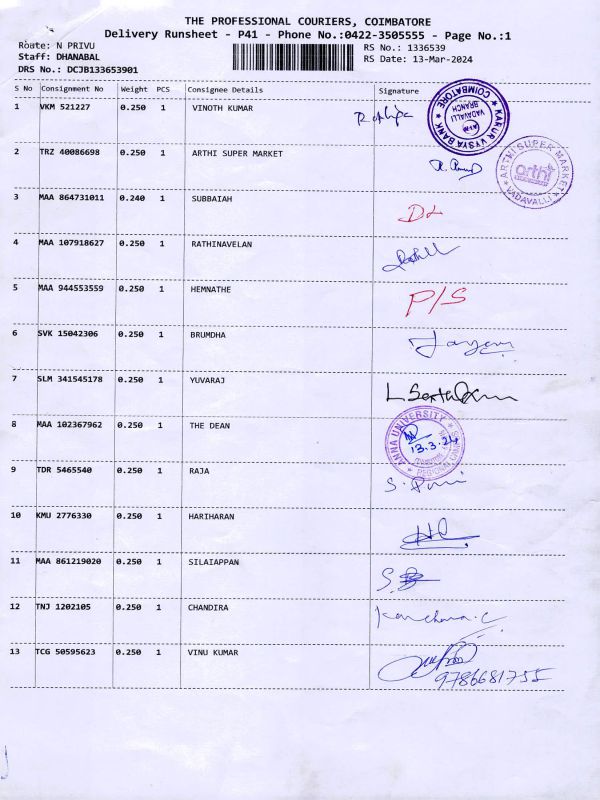 THE PROFESSIONAL COURIERS, COIMBATORE
Delivery Runsheet - P41 - Phone No.:0422-3505555 - Page No.:1
Route: N PRIVU
RS No.: 1336539
Staff: DHANABAL
RS Date: 13-Mar-2024
DRS No.: DCJB133653901
S No Consignment No Weight PCS Consignee Details Signature
1 VKM 521227 0.250 1 VINOTH KUMAR
KARUR VYSYA BANK COIMBATORE
VADAVALLI BRANCH
2 TRZ 40086698 0.250 1 ARTHI SUPER MARKET
ARTHI SUPER MARKET
arthi
VADAVALLI
3 MAA 864731011 0.240 1 SUBBAIAH
4 MAA 107918627 0.250 1 RATHINAVELAN
5 MAA 944553559 0.250 1 HEMNATHE P/S
6 SVK 15042306 0.250 1 BRUMDHA
7 SLM 341545178 0.250 1 YUVARAJ
8 MAA 102367962 0.250 1 THE DEAN
ANNA UNIVERSITY
13.3.24
REGIONAL
9 TDR 5465540 0.250 1 RAJA
10 KMU 2776330 0.250 1 HARIHARAN
11 MAA 861219020 0.250 1 SILAIAPPAN
12 TNJ 1202105 0.250 1 CHANDIRA Kanchana.C
13 TCG 50595623 0.250 1 VINU KUMAR
9786681755